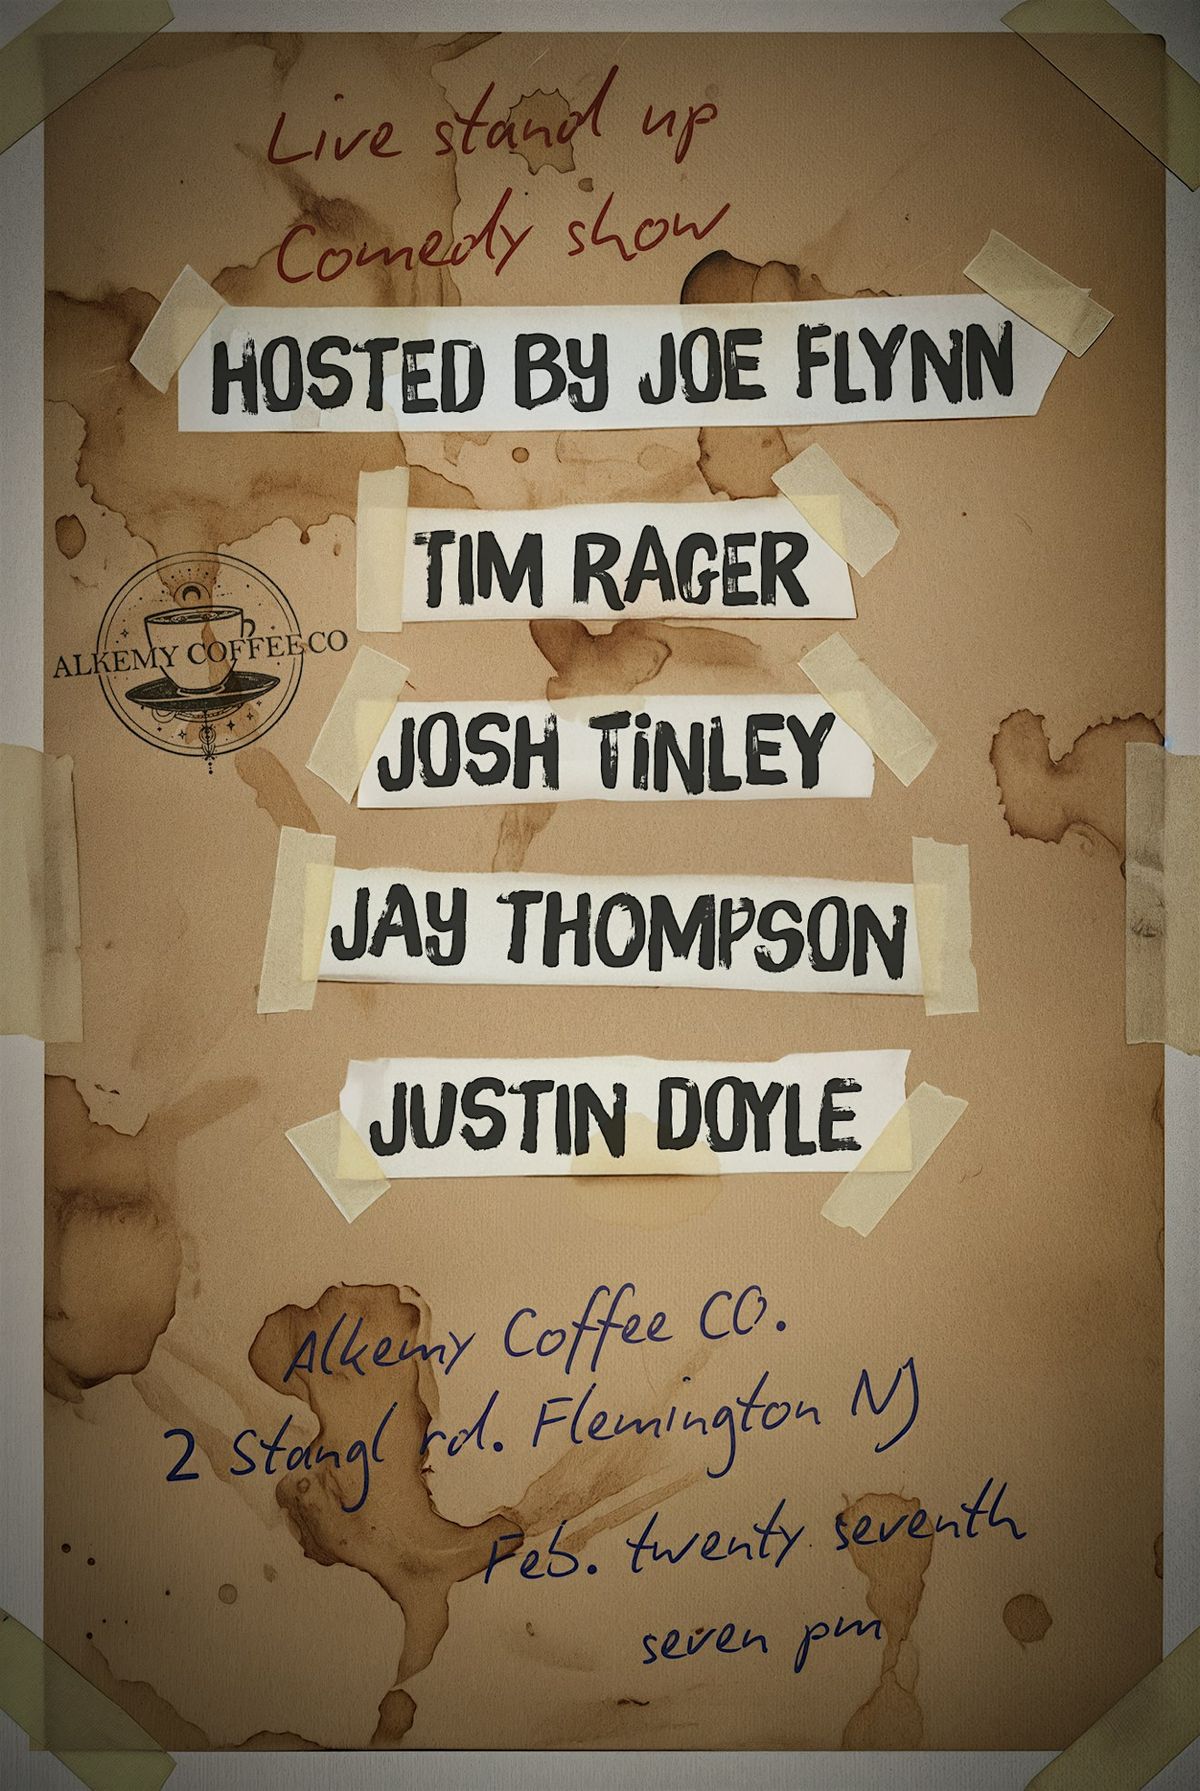 Live stand up
Comedy show
HOSTED BY JOE FLYNN
TIM RAGER
ALKEMY COFFEE CO
JOSH TiNLEY
JAY THOMPSON
JUSTIN DOYLE
Alkemy Coffee CO.
2 Stangl rd. Flemington NJ
Feb. twenty seventh
seven pm